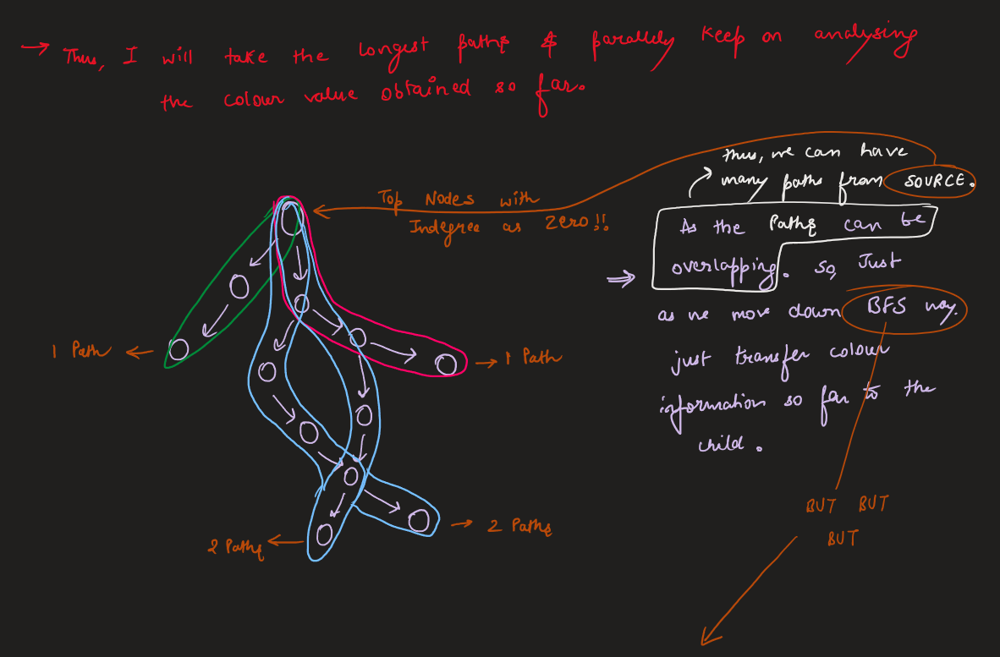 → Thus, I will take the longest paths & parallely keep on analysing
the colour value obtained so far.
thus, we can have
many paths from SOURCE.
Top Nodes with
Indegree as Zero!!
As the Paths can be
overlapping. So, Just
as we move down BFS way.
just transfer colour
information so far to the
child.
1 Path
1 Path
BUT BUT
BUT
2 Paths
2 Paths